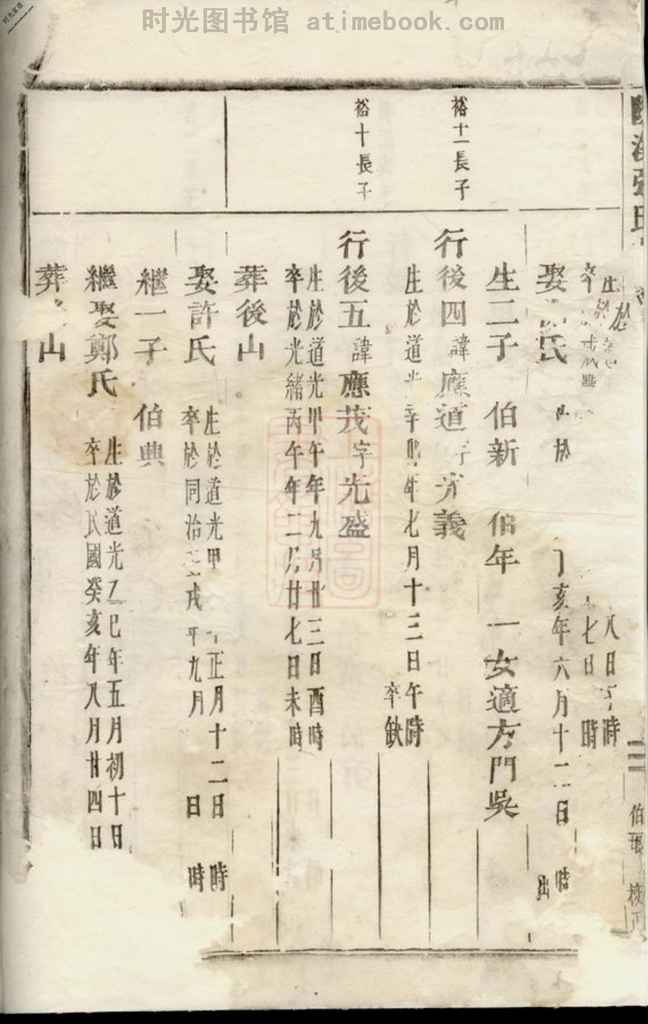 时光图书馆 atimebook.com
張氏
伯 校正
生於 八日 時
卒於 七日 時
娶 氏 於 丁亥年六月十二日 時
生二子 伯新 伯年 一女適方門吳
裕十一長子
行後四諱應道字光義
生於道光辛 年七月十三日午時
卒缺
裕十長子
行後五諱應茂字光盛
生於道光甲午年九月廿三日酉時
卒於光緒丙午年二月廿七日未時
葬後山
娶許氏 生於道光甲 正月十二日 時
卒於同治 戌年九月 日 時
繼一子 伯典
繼娶鄭氏 生於道光乙巳年五月初十日
卒於民國癸亥年八月廿四日
葬 山